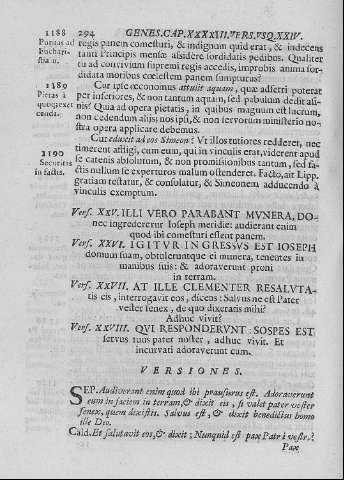 1188 294 GENES.CAP.XXXXIII.VERS.VSQ.XXIV.
Puritas ad regis panem comesturi, & indignum quid erat, & indecens
Euchari- tanti Principis mensæ assidere sordidatis pedibus. Qualiter
stiam. tu ad convivium supremi regis accedis, improbis anima sor-
didata moribus cœlestem panem sumpturus?
1189 Cur ipse œconomus attulit aquam, quæ adferri poterat
Pietas à per inferiores, & non tantum aquam, sed pabulum dedit asi-
quoq; exer nis? Qua ad opera pietatis, in quibus magnum est lucrum,
cenda. non cedendum aliis, nos ipsi, & non servorum ministerio no-
stra opera applicare debemus.
1190 Cur eduxit ad eos Simeon? Vt illos tutiores redderet, nec
Securitas timerent affligi, cum eum, qui in vinculis erat, viderent apud
in factis. se catenis absolutum, & non promissionibus tantum, sed fa-
ctis nullum se experturos malum ostenderet. Facto, ait Lipp.
gratiam testatur, & consolatur, & Simeonem adducendo à
vinculis exemptum.
Vers. XXV. ILLI VERO PARABANT MVNERA, DO-
nec ingrederetur Ioseph meridie: audierant enim
quod ibi comesturi essent panem.
Vers. XXVI. IGITVR INGRESSVS EST IOSEPH
domum suam, obtuleruntque ei munera, tenentes in
manibus suis: & adoraverunt proni
in terram.
Vers. XXVII. AT ILLE CLEMENTER RESALVTA-
tis eis, interrogavit eos, dicens: Salvus ne est Pater
vester senex, de quo dixeratis mihi?
Adhuc vivit?
Vers. XXVIII. QVI RESPONDERVNT: SOSPES EST
servus tuus pater noster, adhuc vivit. Et
incurvati adoraverunt eum.
VERSIONES.
SEP. Audiverant enim quod ibi pransurus est. Adoraverunt
eum in faciem in terram, & dixit eis, si valet pater vester
senex, quem dixistis. Salvus est, & dixit benedictus homo
ille Deo.
Cald. Et salutavit eos, & dixit; Nunquid est pax Patri vestr.?
Pax